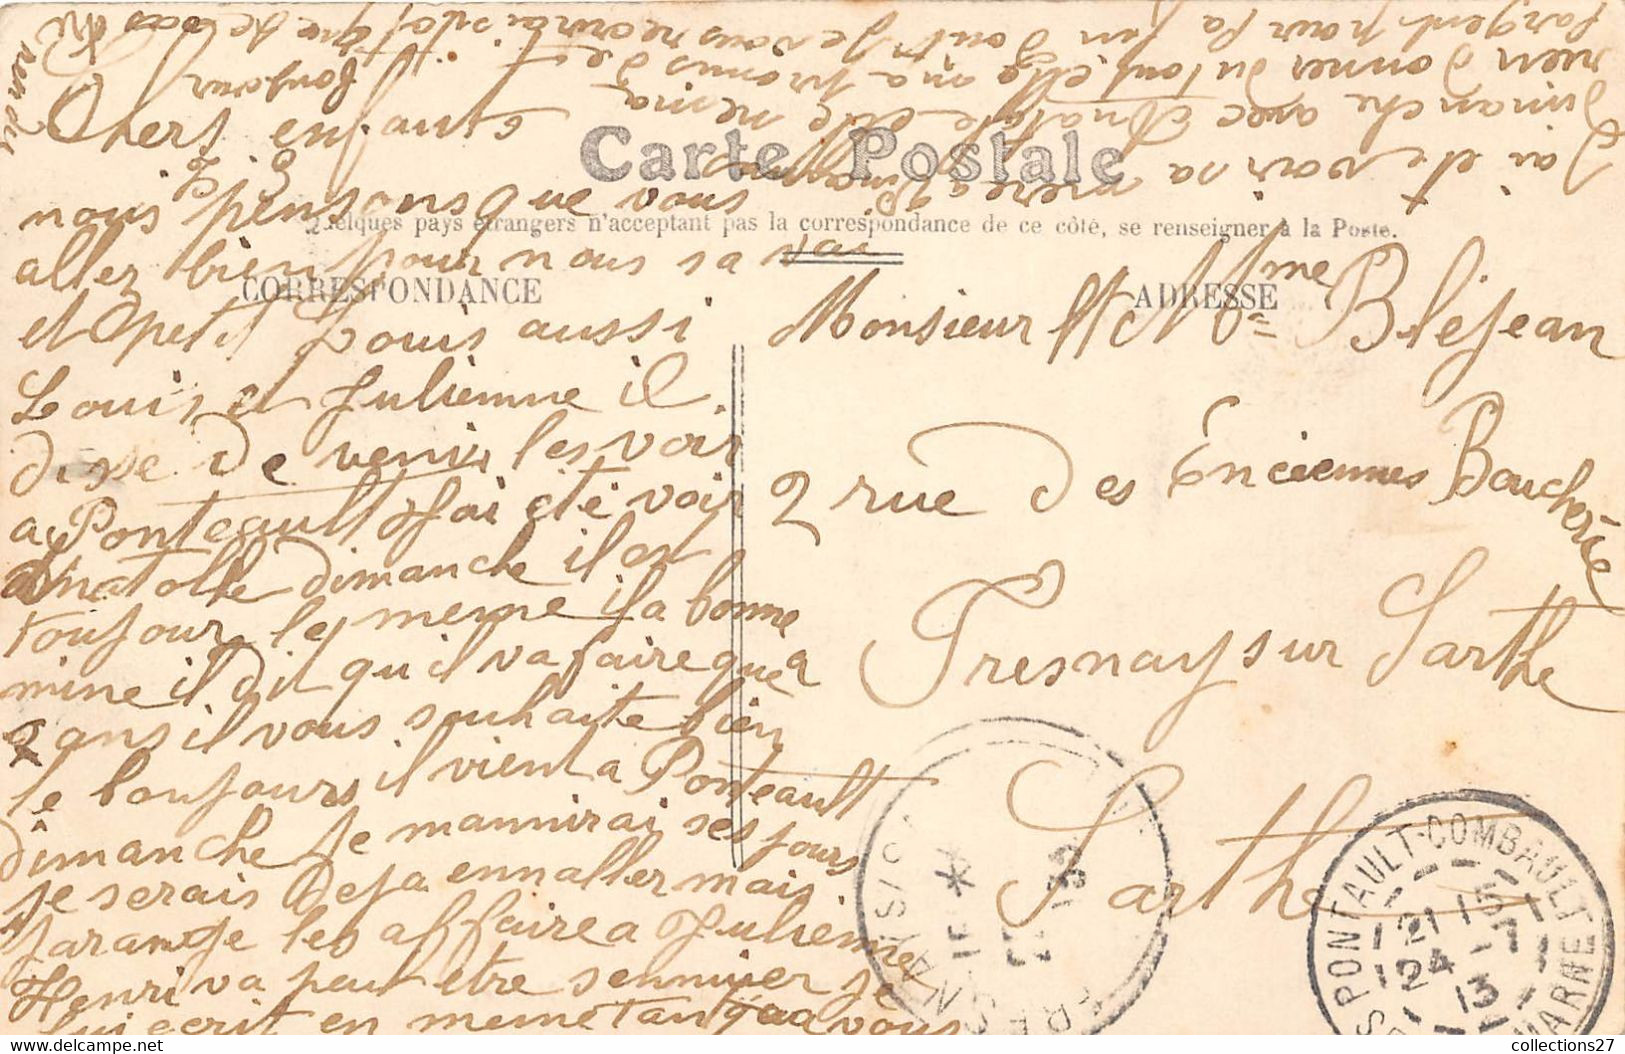 Carte Postale
Quelques pays étrangers n'acceptant pas la correspondance de ce côté, se renseigner à la Poste.
CORRESPONDANCE
ADRESSE
Chers enfants
nous pensons que vous
allez bien pour nous sa va
et petit Louis aussi
Louis et Julienne il
disse de venir les voir
a Ponteault J'ai été voir
Anatolle dimanche il est
toujour le meme il a bonne
mine il dit qu il va faire que
2 ans il vous souhaite bien
le bonjours il vient a Ponteault
dimanche Je mannirai ses jours
je serais Deja ennaller mais
jarange les affaire a Julienne
Henri va peut etre sennuyer je
lui ecrit en meme tan qua vous
J'ai ete voir sa mere a
Dimanche avec Anatole elle ne ma
rien donner du tout elle ma promis de
largent pour la fin
bonjour
Monsieur et Mme Bléjean
2 rue des Enciennes Boucherie
Fresnay sur Sarthe
Sarthe
PONTAULT-COMBAULT
21 15
24 - 7
13
MARNE
collections27